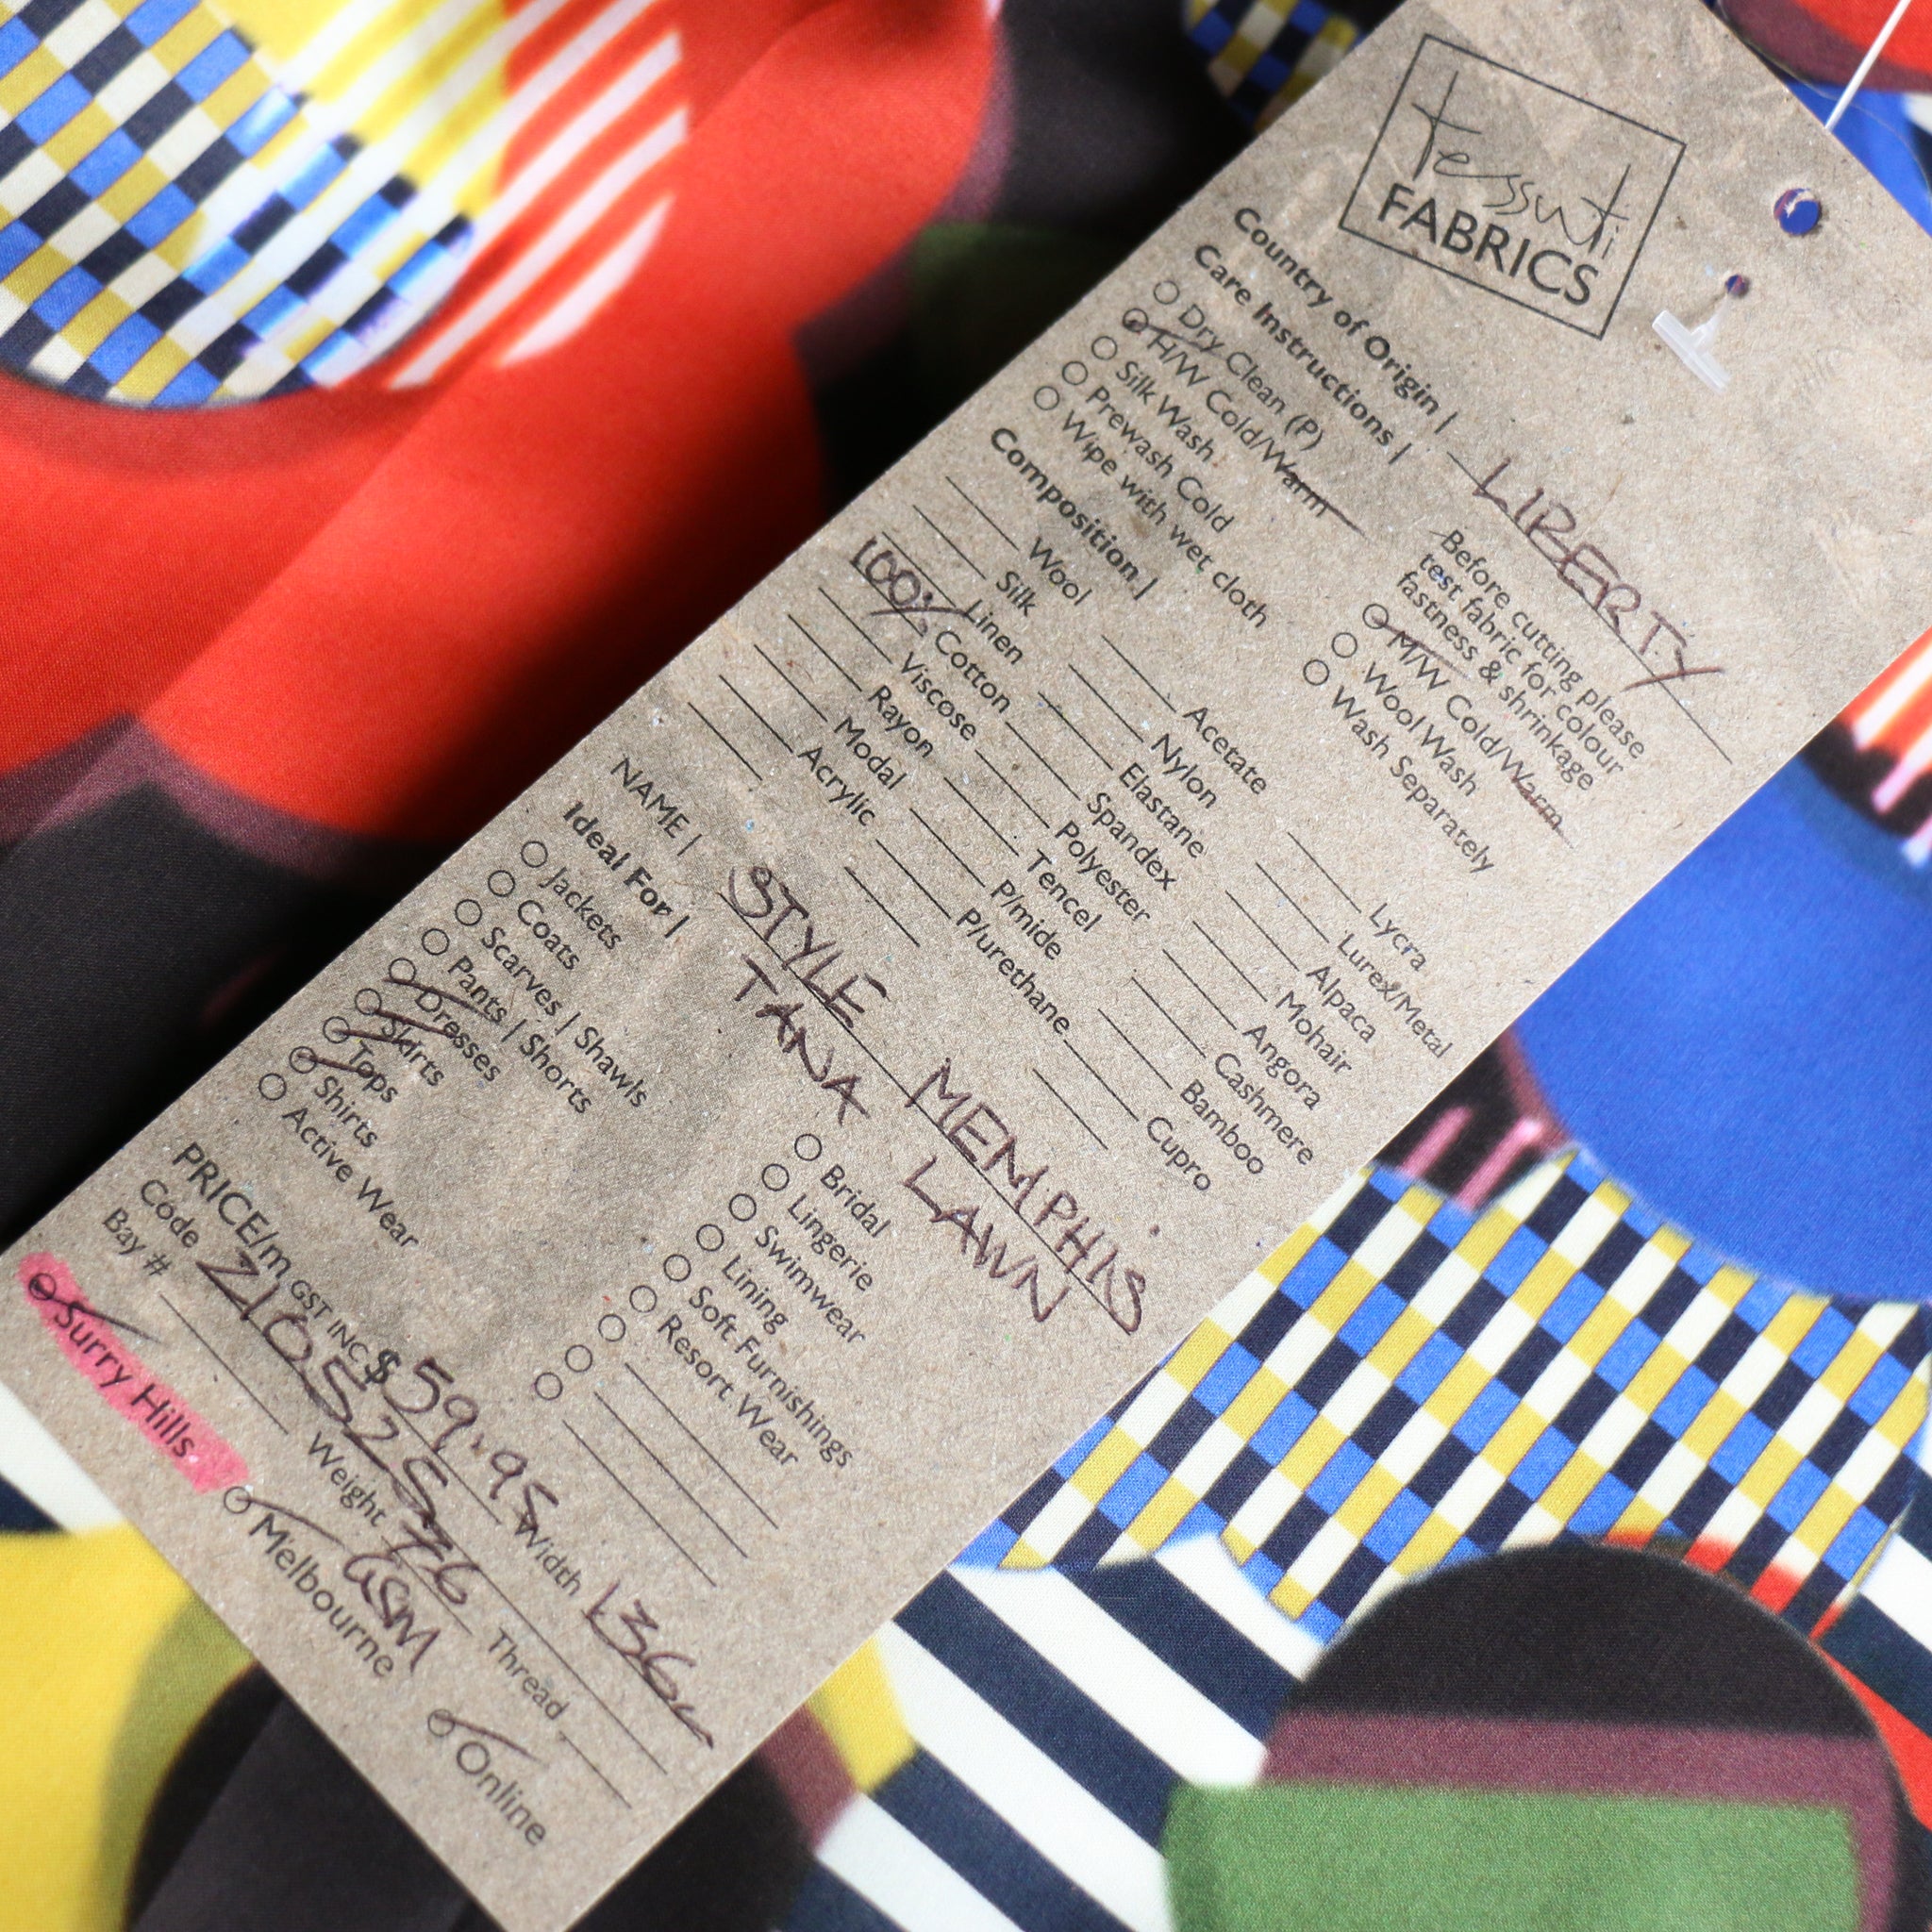 tessuti
FABRICS
Country of Origin | LIBERTY
Care Instructions |
Before cutting please
test fabric for colour
fastness & shrinkage
Dry Clean (P)
H/W Cold/Warm
Silk Wash
Prewash Cold
Wipe with wet cloth
M/W Cold/Warm
Wool Wash
Wash Separately
Composition |
Wool
Silk
Linen
100% Cotton
Viscose
Rayon
Modal
Acrylic
Acetate
Nylon
Elastane
Spandex
Polyester
Tencel
P/mide
P/urethane
Lycra
Lurex/Metal
Alpaca
Mohair
Angora
Cashmere
Bamboo
Cupro
NAME | STYLE MEMPHIS
TANA LAWN
Ideal For |
Jackets
Coats
Scarves | Shawls
Pants | Shorts
Dresses
Skirts
Tops
Shirts
Active Wear
Bridal
Lingerie
Swimwear
Lining
Soft Furnishings
Resort Wear
PRICE/m GST INC $59.95 Width 136cm
Code
Bay # Weight Thread
GSM
Surry Hills Melbourne Online